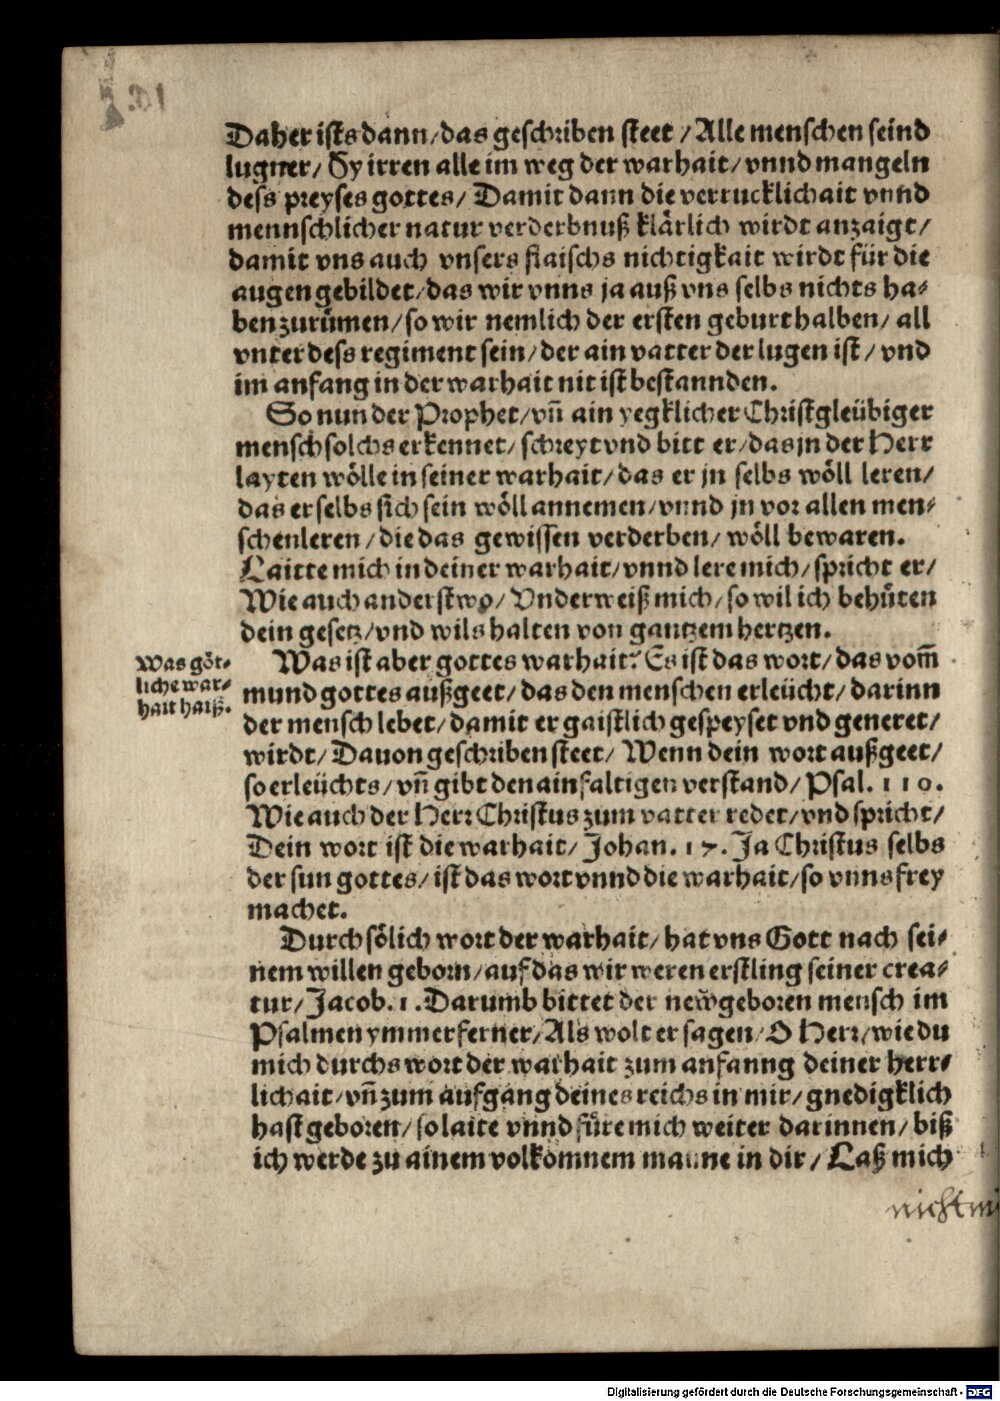 Daher ists dann/das geschriben steet/Alle menschen seind
lugner/Sy irren alle im weg der warhait/vnnd mangeln
dess preyses gottes/Damit dann die verrucklichait vnnd
mennschlicher natur verderbnuß klärlich wirdt anzaigt/
damit vns auch vnsers flaischs nichtigkait wirdt für die
augen gebildet/das wir vnns ja auß vns selbs nichts ha⸗
ben zurůmen/so wir nemlich der ersten geburt halben/all
vnter dess regiment sein/der ain vatter der lugen ist/vnd
im anfang in der warhait nit ist bestannden.
So nun der Prophet/vñ ain yegklicher Christgleübiger
mensch solchs erkennet/schreyt vnd bitt er/das jn der Herr
layten wölle in seiner warhait/das er jn selbs wöll leren/
das er selbs sich sein wöll annemen/vnnd jn vor allen men⸗
schenleren/die das gewissen verderben/wöll bewaren.
Laitte mich in deiner warhait/vnnd lere mich/spricht er/
Wie auch anderstwo/Vnderweiß mich/so wil ich behůten
dein gesetz/vnd wils halten von gantzem hertzen.
Was göt⸗
liche war⸗
hait haiß.
Was ist aber gottes warhait? Es ist das wort/das vom̃
mund gottes außgeet/das den menschen erleücht/darinn
der mensch lebet/damit er gaistlich gespeyset vnd generet/
wirdt/Dauon geschriben steet/Wenn dein wort außgeet/
so erleüchts/vñ gibt den ainfaltigen verstand/Psal. 110.
Wie auch der Herr Christus zum vatter redet/vnd spricht/
Dein wort ist die warhait/Johan. 17. Ja Christus selbs
der sun gottes/ist das wort vnnd die warhait/so vnns frey
machet.
Durch sölich wort der warhait/hat vns Gott nach sei⸗
nem willen geborn/auf das wir weren erstling seiner crea⸗
tur/Jacob. 1. Darumb bittet der new̃geboren mensch im
Psalmen ymmer ferner/Als wolt er sagen/O Herr/wie du
mich durchs wort der warhait zum anfanng deiner herr⸗
lichait/vñ zum aufgang deines reichs in mir/gnedigklich
hast geboren/so laite vnnd fůre mich weiter darinnen/biß
ich werde zu ainem volkomnem manne in dir/Laß mich
nicht
Digitalisierung gefördert durch die Deutsche Forschungsgemeinschaft - DFG